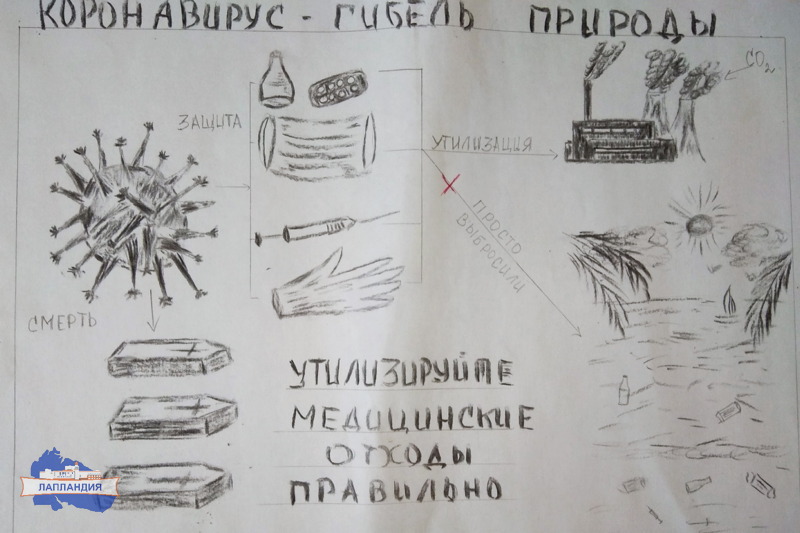 КОРОНАВИРУС - ГИБЕЛЬ ПРИРОДЫ
CO₂
ЗАЩИТА
УТИЛИЗАЦИЯ
ПРОСТО
ВЫБРОСИЛИ
СМЕРТЬ
УТИЛИЗИРУЙТЕ
МЕДИЦИНСКИЕ
ОТХОДЫ
ПРАВИЛЬНО
ЛАПЛАНДИЯ